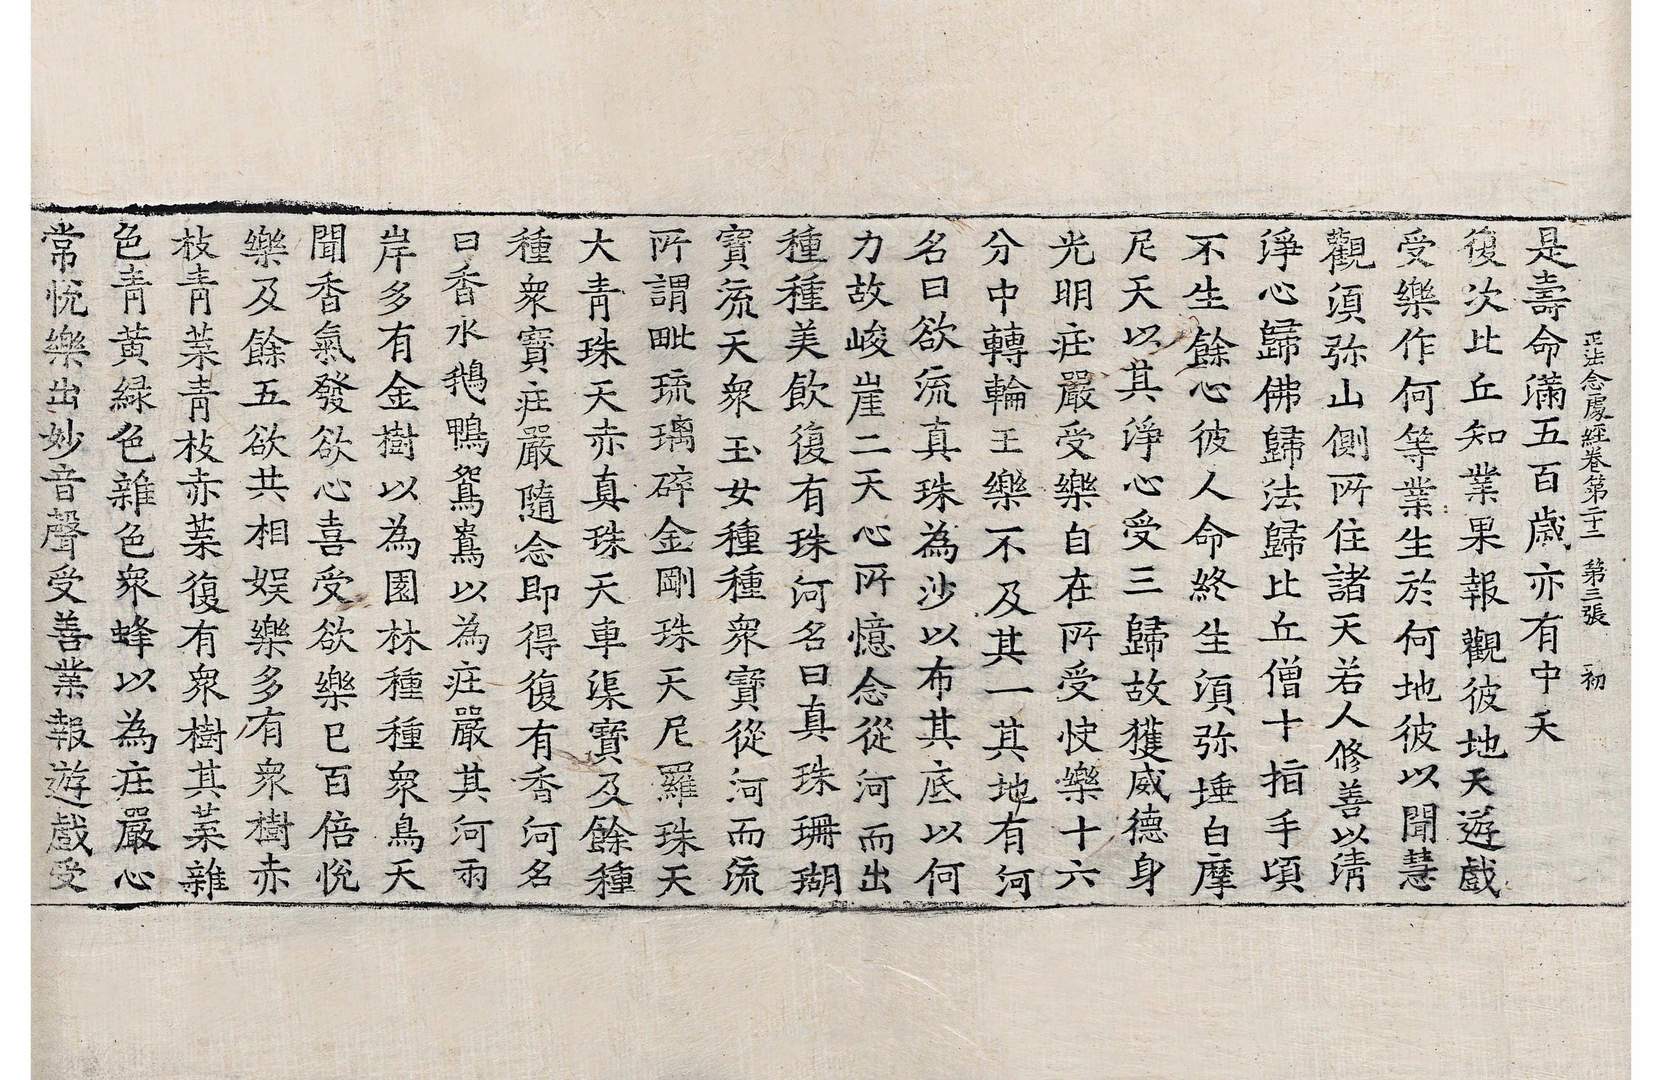 正法念處經卷第二十二 第三張 初
是壽命滿五百歲亦有中夭
復次比丘知業果報觀彼地天遊戲
受樂作何等業生於何地彼以聞慧
觀須弥山側所住諸天若人修善以清
淨心歸佛歸法歸比丘僧十指手頃
不生餘心彼人命終生須弥埵白摩
尼天以其淨心受三歸故獲威德身
光明莊嚴受樂自在所受快樂十六
分中轉輪王樂不及其一其地有河
名曰欲流真珠為沙以布其底以何
力故峻崖二天心所憶念從河而出
種種美飲復有珠河名曰真珠珊瑚
寶流天衆玉女種種衆寶從河而流
所謂毗琉璃碎金剛珠天尼羅珠天
大青珠天赤真珠天車渠寶及餘種
種衆寶莊嚴隨念即得復有香河名
曰香水鵝鴨鴛鴦以為莊嚴其河兩
岸多有金樹以為園林種種衆鳥天
聞香氣發欲心喜受欲樂已百倍悅
樂及餘五欲共相娛樂多有衆樹赤
枝青葉青枝赤葉復有衆樹其葉雜
色青黃緑色雜色衆蜂以為莊嚴心
常悅樂出妙音聲受善業報遊戲受